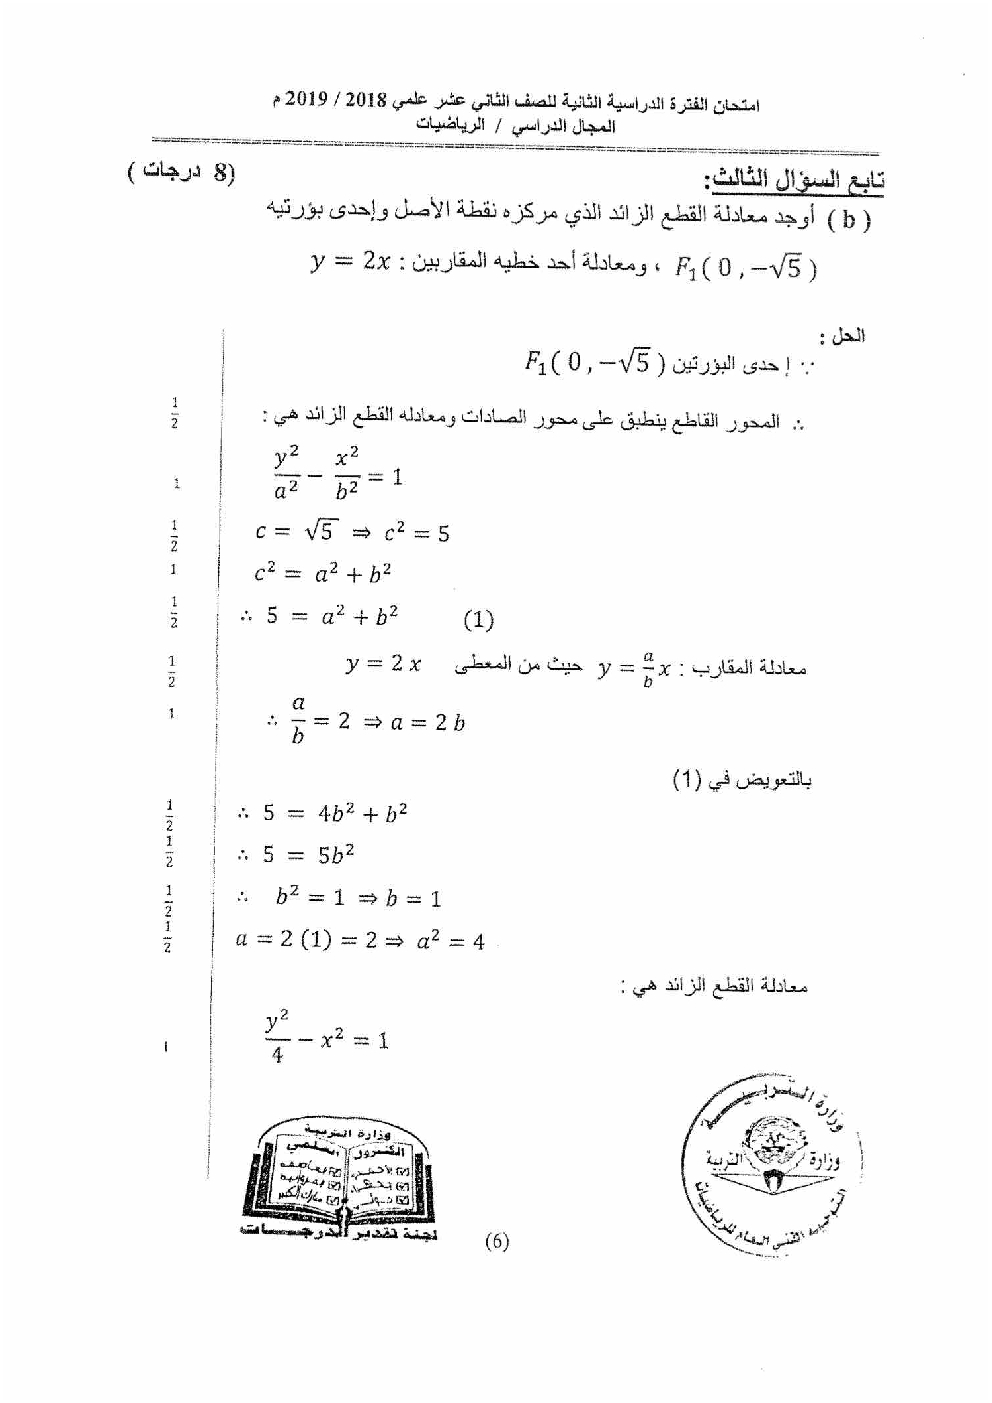 امتحان الفترة الدراسية الثانية للصف الثاني عشر علمي 2018 / 2019 م
المجال الدراسي / الرياضيات
تابع السؤال الثالث: (8 درجات)
(b) أوجد معادلة القطع الزائد الذي مركزه نقطة الأصل وإحدى بؤرتيه
F₁(0, −√5) ، ومعادلة أحد خطيه المقاربين : y = 2x
الحل :
∵ إحدى البؤرتين F₁(0, −√5)
∴ المحور القاطع ينطبق على محور الصادات ومعادلة القطع الزائد هي : 1/2
y²/a² − x²/b² = 1 1
c = √5 ⇒ c² = 5 1/2
c² = a² + b² 1
∴ 5 = a² + b² (1) 1/2
معادلة المقارب : y = a/b x حيث من المعطى y = 2x 1/2
∴ a/b = 2 ⇒ a = 2b 1
بالتعويض في (1)
∴ 5 = 4b² + b² 1/2
∴ 5 = 5b² 1/2
∴ b² = 1 ⇒ b = 1 1/2
a = 2(1) = 2 ⇒ a² = 4 1/2
معادلة القطع الزائد هي :
y²/4 − x² = 1 1
وزارة التربية
وزارة التربية
التوجيه الفني العام للرياضيات
وزارة التربية
الكنترول العلمي
لجنة تقدير الدرجات
(6)